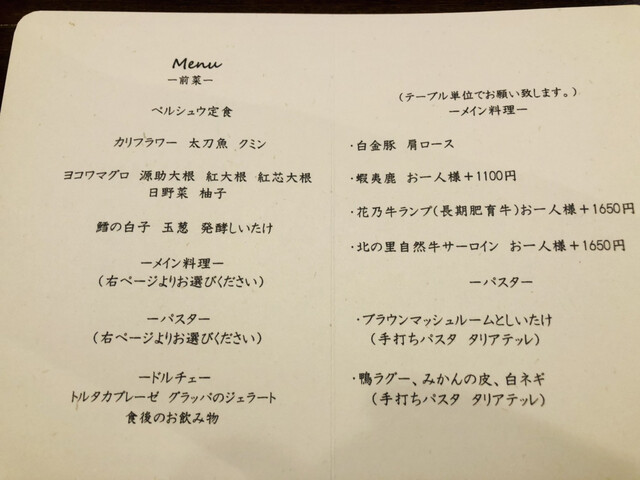 Menu
ー前菜ー
ペルシュウ定食
カリフラワー 太刀魚 クミン
ヨコワマグロ 源助大根 紅大根 紅芯大根
日野菜 柚子
鱈の白子 玉葱 発酵しいたけ
ーメイン料理ー
(右ページよりお選びください)
ーパスター
(右ページよりお選びください)
ードルチェー
トルタカプレーゼ グラッパのジェラート
食後のお飲み物
(テーブル単位でお願い致します。)
ーメイン料理ー
・白金豚 肩ロース
・蝦夷鹿 お一人様+1100円
・花乃牛ランプ(長期肥育牛)お一人様+1650円
・北の里自然牛サーロイン お一人様+1650円
ーパスター
・ブラウンマッシュルームとしいたけ
(手打ちパスタ タリアテッレ)
・鴨ラグー、みかんの皮、白ネギ
(手打ちパスタ タリアテッレ)